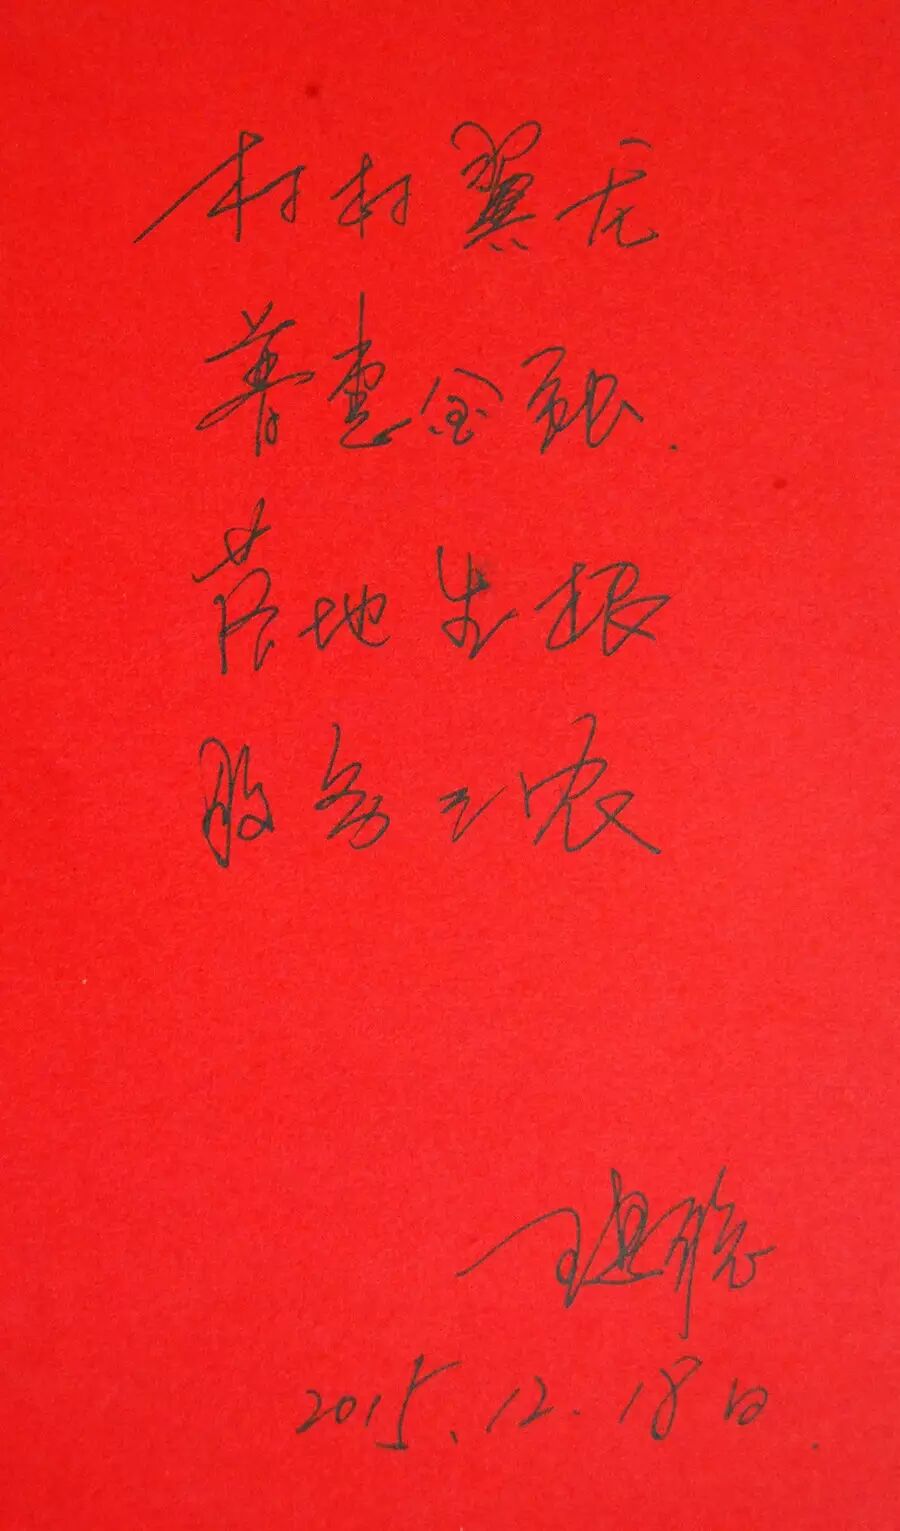 村村翼龙
普惠金融.
落地生根
服务三农
王建聪
2015.12.18日.